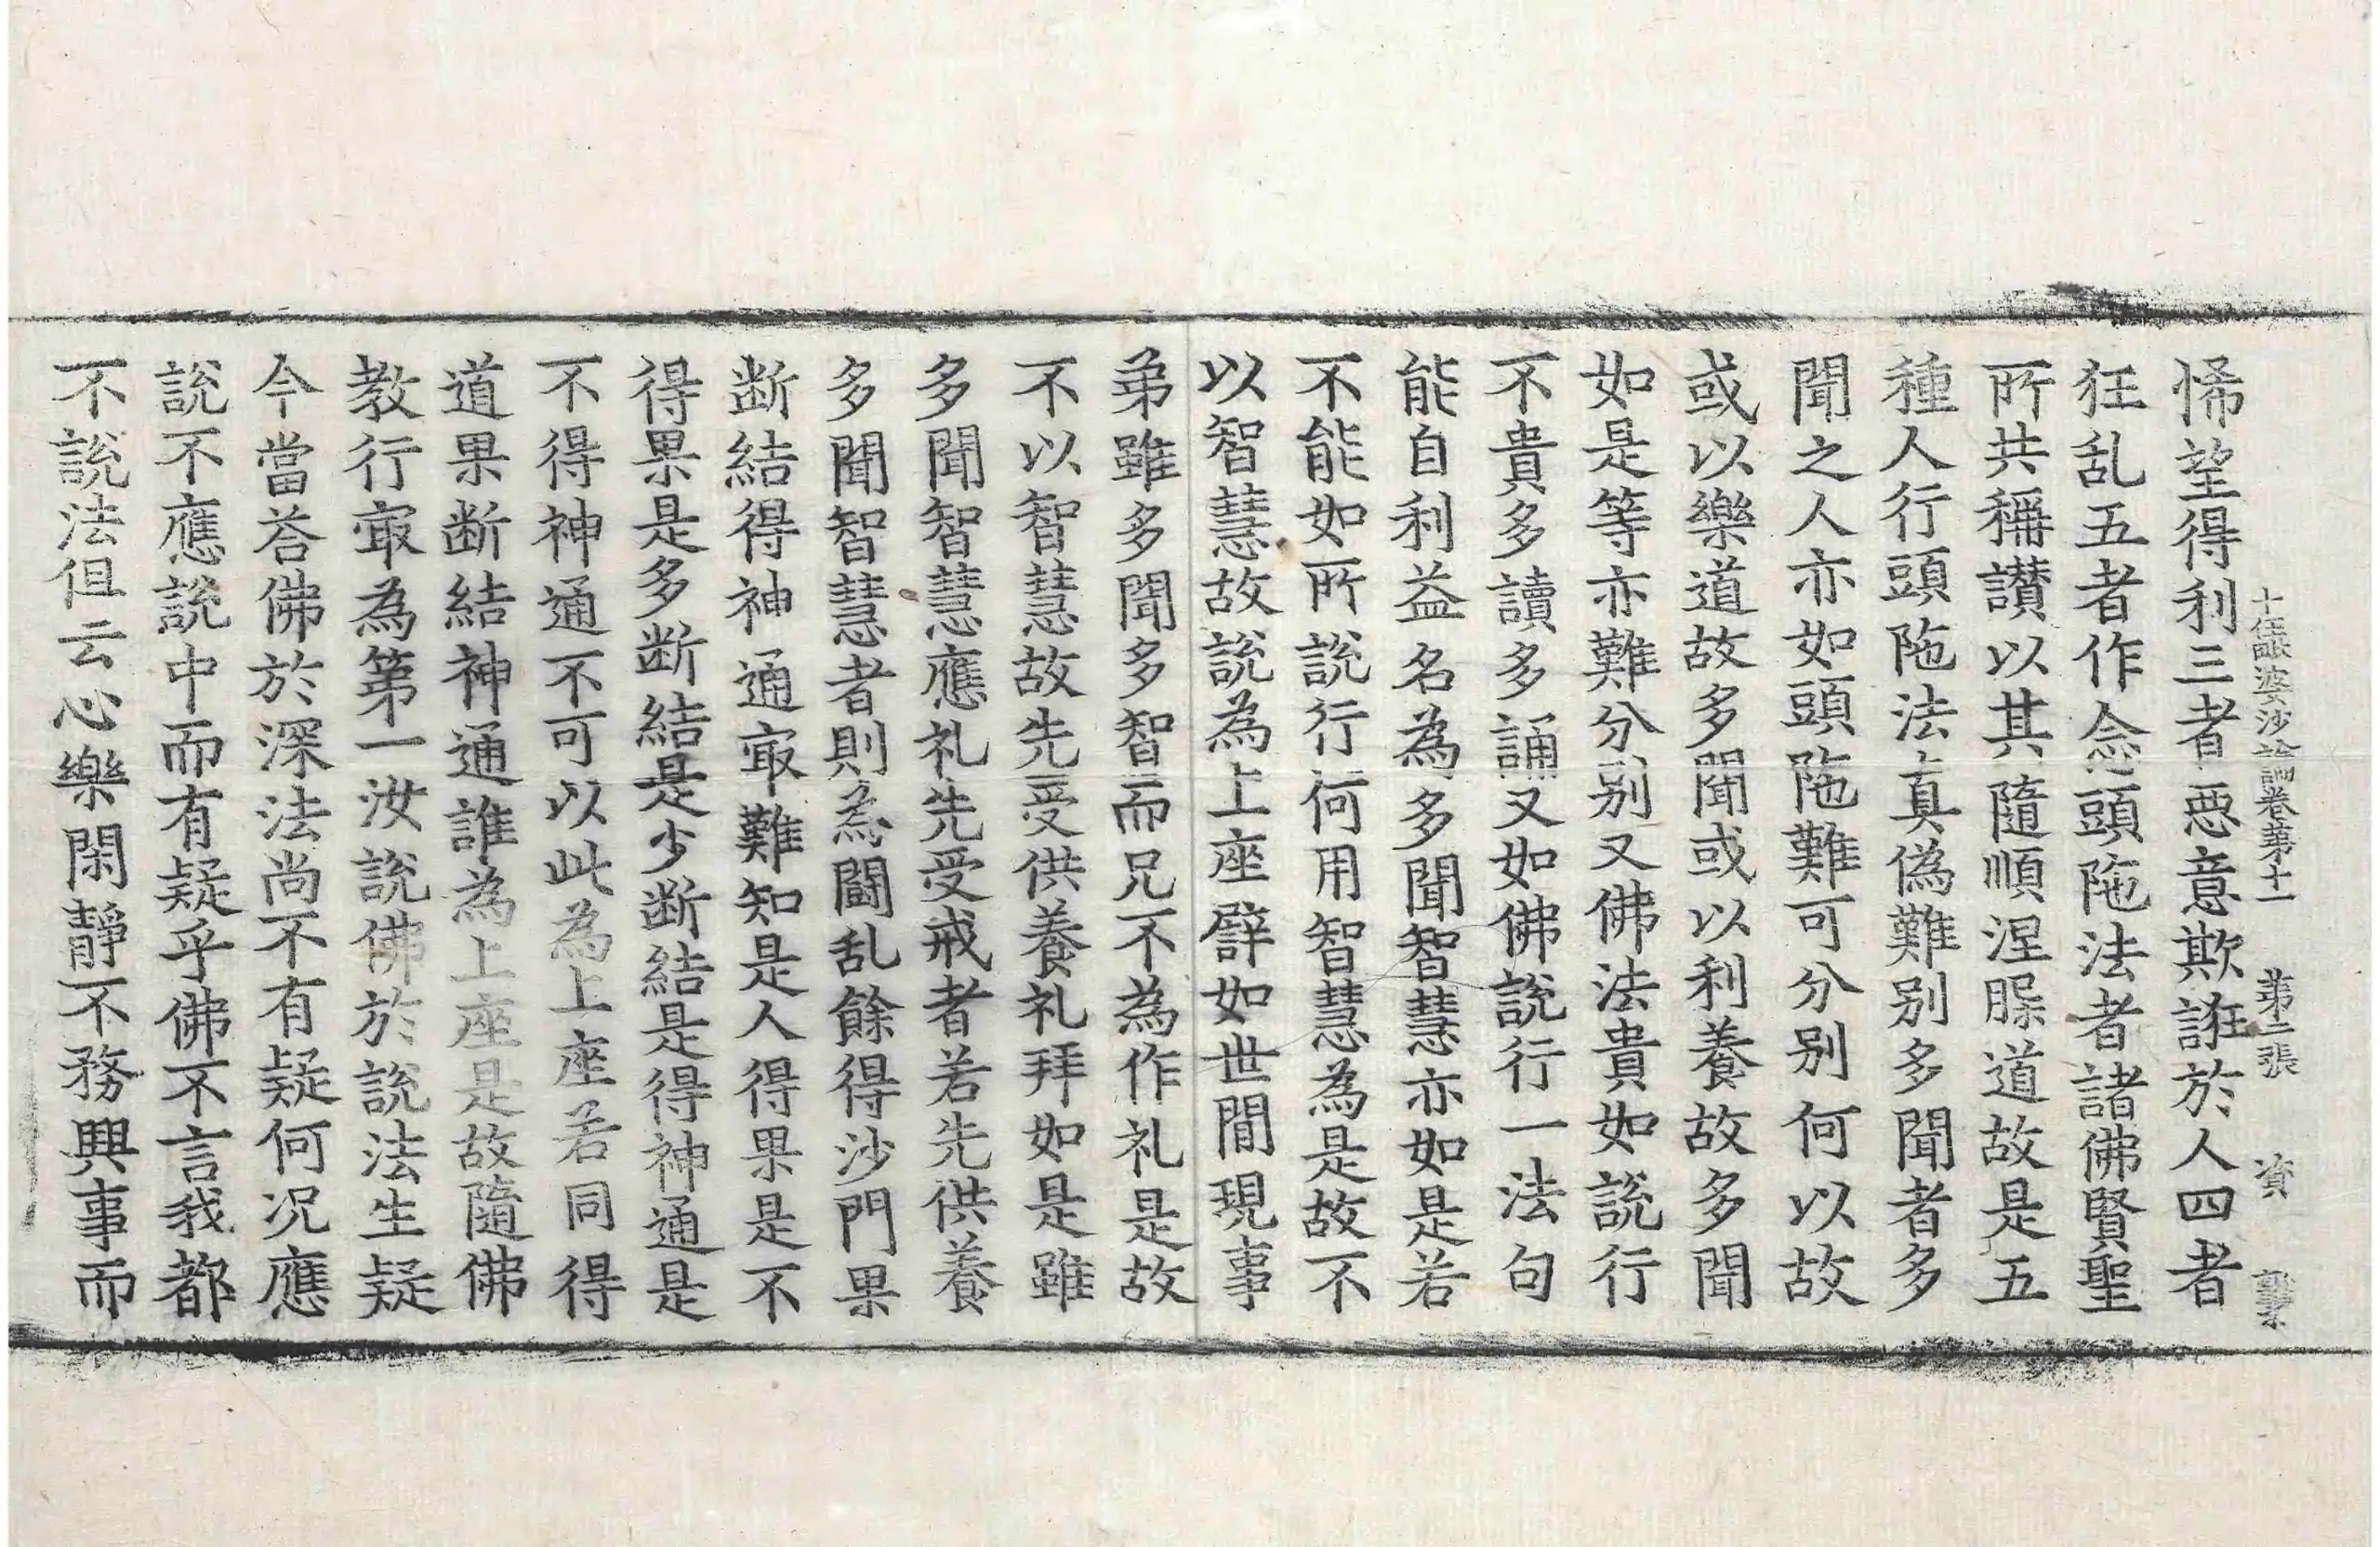 十住毗婆沙論卷第十一　第二張　資
悕望得利三者惡意欺誑於人四者
狂乱五者作念頭陁法者諸佛賢聖
所共稱讃以其隨順涅槃道故是五
種人行頭陁法真偽難別多聞者多
聞之人亦如頭陁難可分別何以故
或以樂道故多聞或以利養故多聞
如是等亦難分別又佛法貴如說行
不貴多讀多誦又如佛說行一法句
能自利益名為多聞智慧亦如是若
不能如所說行何用智慧為是故不
以智慧故說為上座譬如世間現事
弟雖多聞多智而兄不為作礼是故
不以智慧故先受供養礼拜如是雖
多聞智慧應礼先受戒者若先供養
多聞智慧者則為鬪乱餘得沙門果
断結得神通㝡難知是人得果是不
得果是多断結是少断結是得神通是
不得神通不可以此為上座若同得
道果断結神通誰為上座是故隨佛
教行㝡為第一汝說佛於說法生疑
今當荅佛於深法尚不有疑何况應
說不應說中而有疑乎佛不言我都
不說法但云心樂閑靜不務興事而